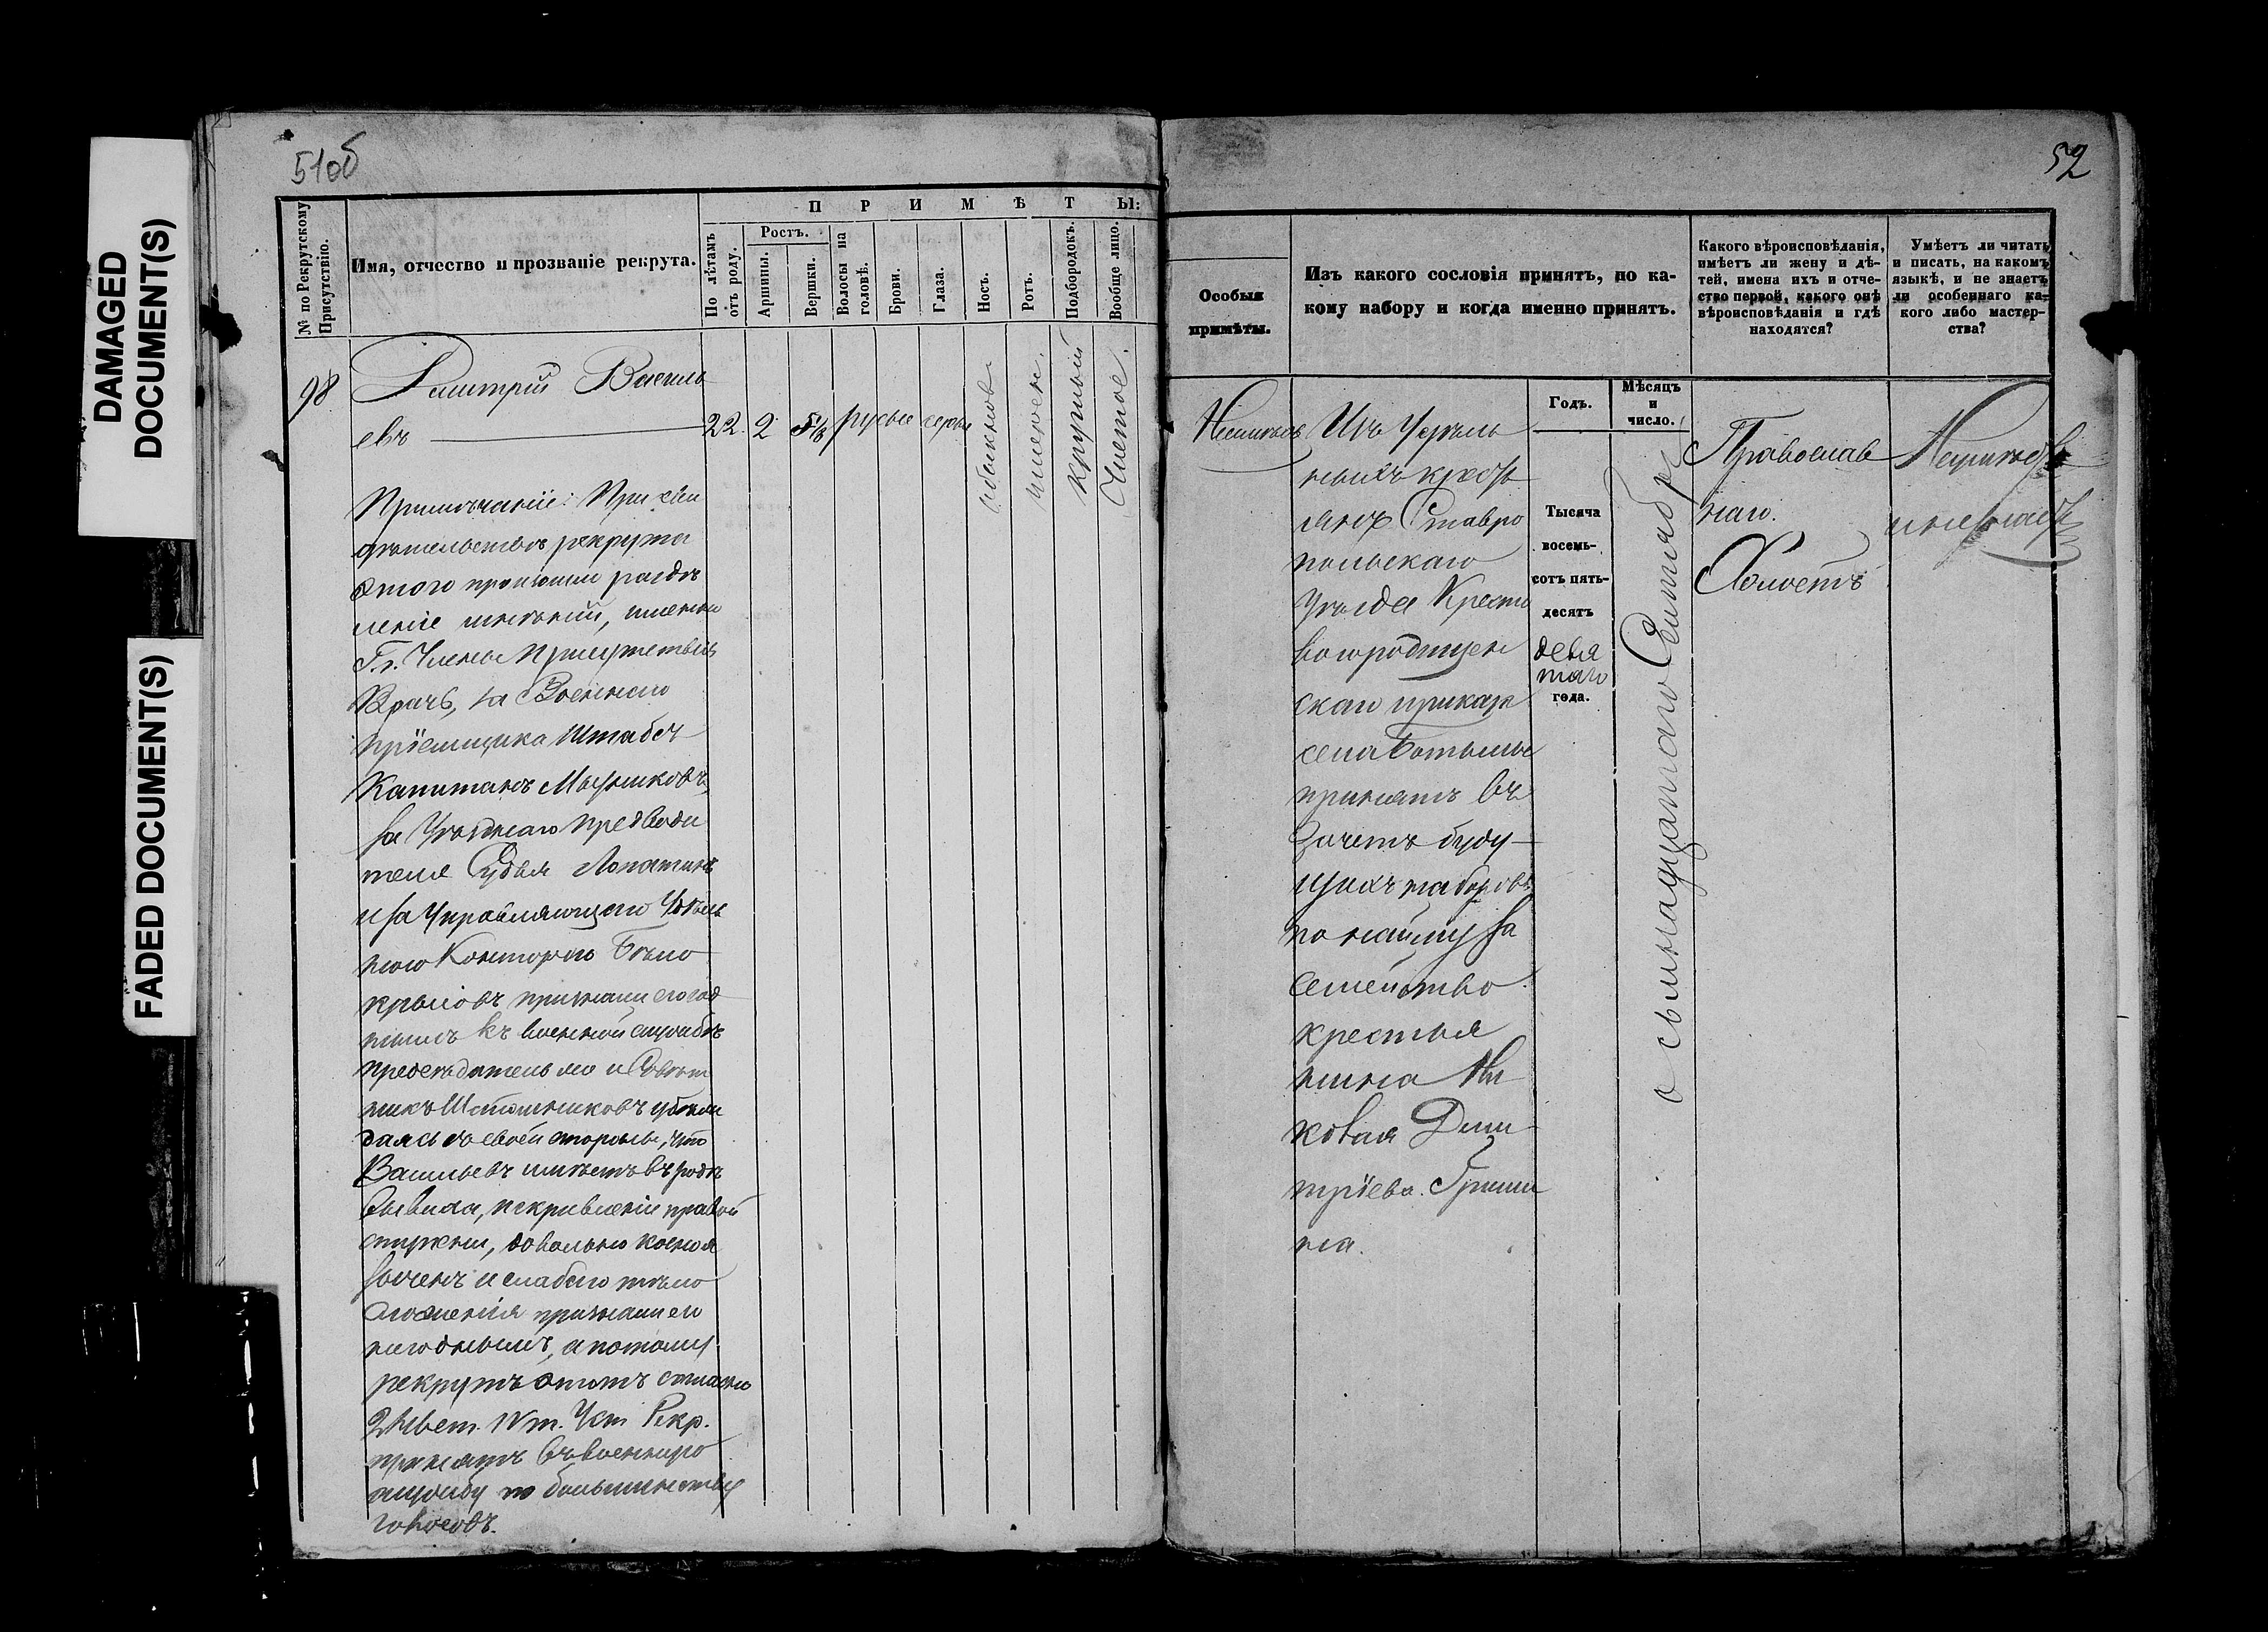 DAMAGED
DOCUMENT(S)
FADED DOCUMENT(S)
51об
№ по Рекрутскому
Присутствію.
Имя, отчество и прозваніе рекрута.
ПРИМѢТЫ:
По лѣтамъ
отъ роду.
Ростъ.
Аршины.
Вершки.
Волосы на
головѣ.
Брови.
Глаза.
Носъ.
Ротъ.
Подбородокъ.
Вообще лицо.
98
Дмитрій Василь
евъ
22.
2
5 1/8
русые
серые
обыкнов
умерен.
круглый
Чистое.
Примѣчаніе: При сви
дѣтельствѣ рекрута
этого произошли раздѣ
леніе мнѣній, именно
Гг. Члены Присутствія
Врачъ, за Военнаго
пріемщика Штабсъ
Капитанъ Мясниковъ,
за Уѣзднаго предводи
теля Судья Лопатинъ
и за Управляющаго Удѣль
ною Конторою Бѣло
крысовъ признали его год
нымъ къ военной службѣ
предсѣдатель же и Совѣт
никъ убѣж
даясь со своей стороны, что
Васильевъ имѣетъ въ родѣ
вывиха, искривленіе правой
ступни, довольно косноя
зыченъ и слабаго тѣло
сложенія признали его
негоднымъ, а потому
рекрутъ этотъ согласно
т. Уст Рекр.
принятъ въ военную
службу по большинству
голосовъ.
52
Особыя
примѣты.
Изъ какого сословія принятъ, по ка-
кому набору и когда именно принятъ.
Какого вѣроисповѣданія,
имѣетъ ли жену и дѣ-
тей, имена ихъ и отче-
ство первой, какого онѣ
вѣроисповѣданія и гдѣ
находятся?
Умѣетъ ли читать
и писать, на какомъ
языкѣ, и не знаетъ
ли особеннаго ка-
кого либо мастер-
ства?
Неимѣетъ
Изъ Удѣль
ныхъ кресть
янъ Ставро
польскаго
Уѣзда Кресто
вогородищен
скаго приказа
села
принятъ въ
Зачетъ буду-
щихъ наборовъ
по найму за
семейство
крестья
нина Ни
колая Дми-
тріева Гриши
на.
Годъ.
Тысяча
восемь-
сотъ пять-
десятъ
девя
таго
года.
Мѣсяцъ
и
число.
осьмнадцатаго Сентября
Православ
наго.
Холостъ
Неумѣетъ
и незнаетъ